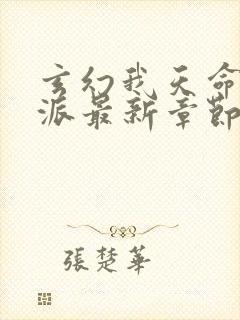 玄幻我天命
派最新章節
張楚華